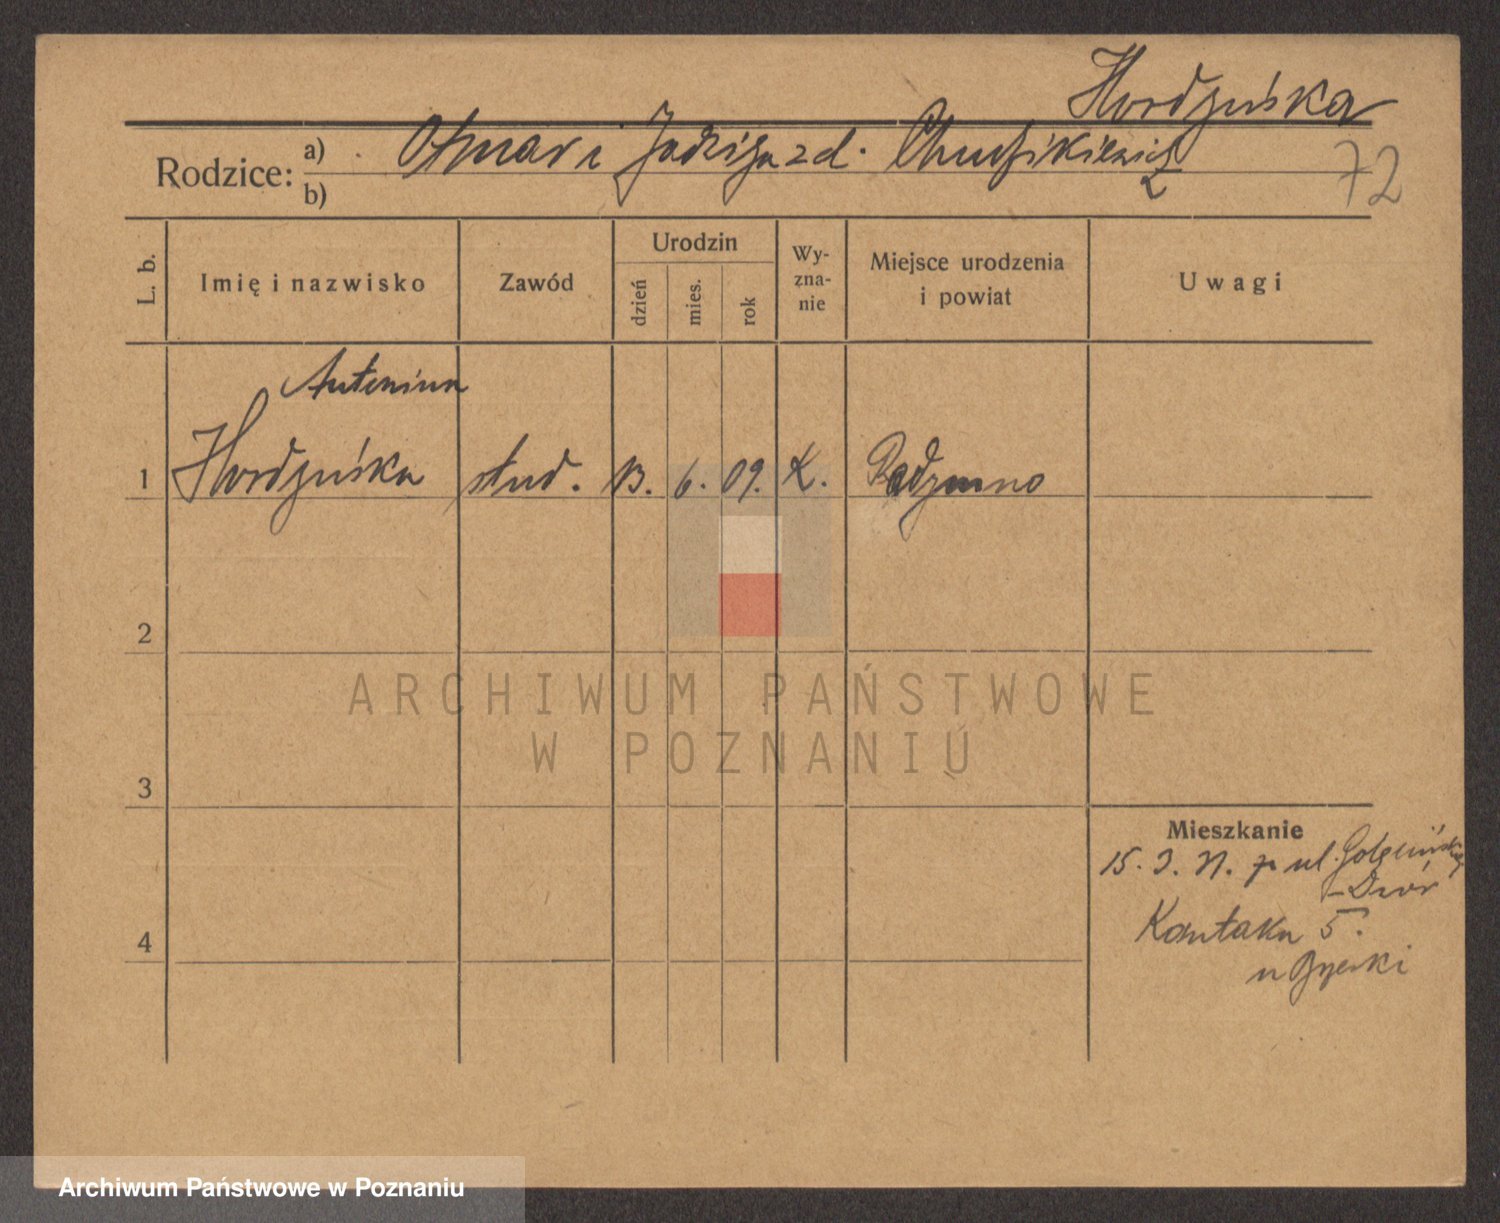 Hordyńska
Rodzice: a) Otmar i Jadwiga z d.
b)
72
L. b.
Imię i nazwisko
Zawód
Urodzin
dzień
mies.
rok
Wy-
zna-
nie
Miejsce urodzenia
i powiat
Uwagi
Antonina
1 Hordyńska stud. 13. 6. 09. K. Radymno
2
3
4
Mieszkanie
15. ul. Golęcińska
Kantaka 5.
ARCHIWUM PAŃSTWOWE
W POZNANIU
Archiwum Państwowe w Poznaniu